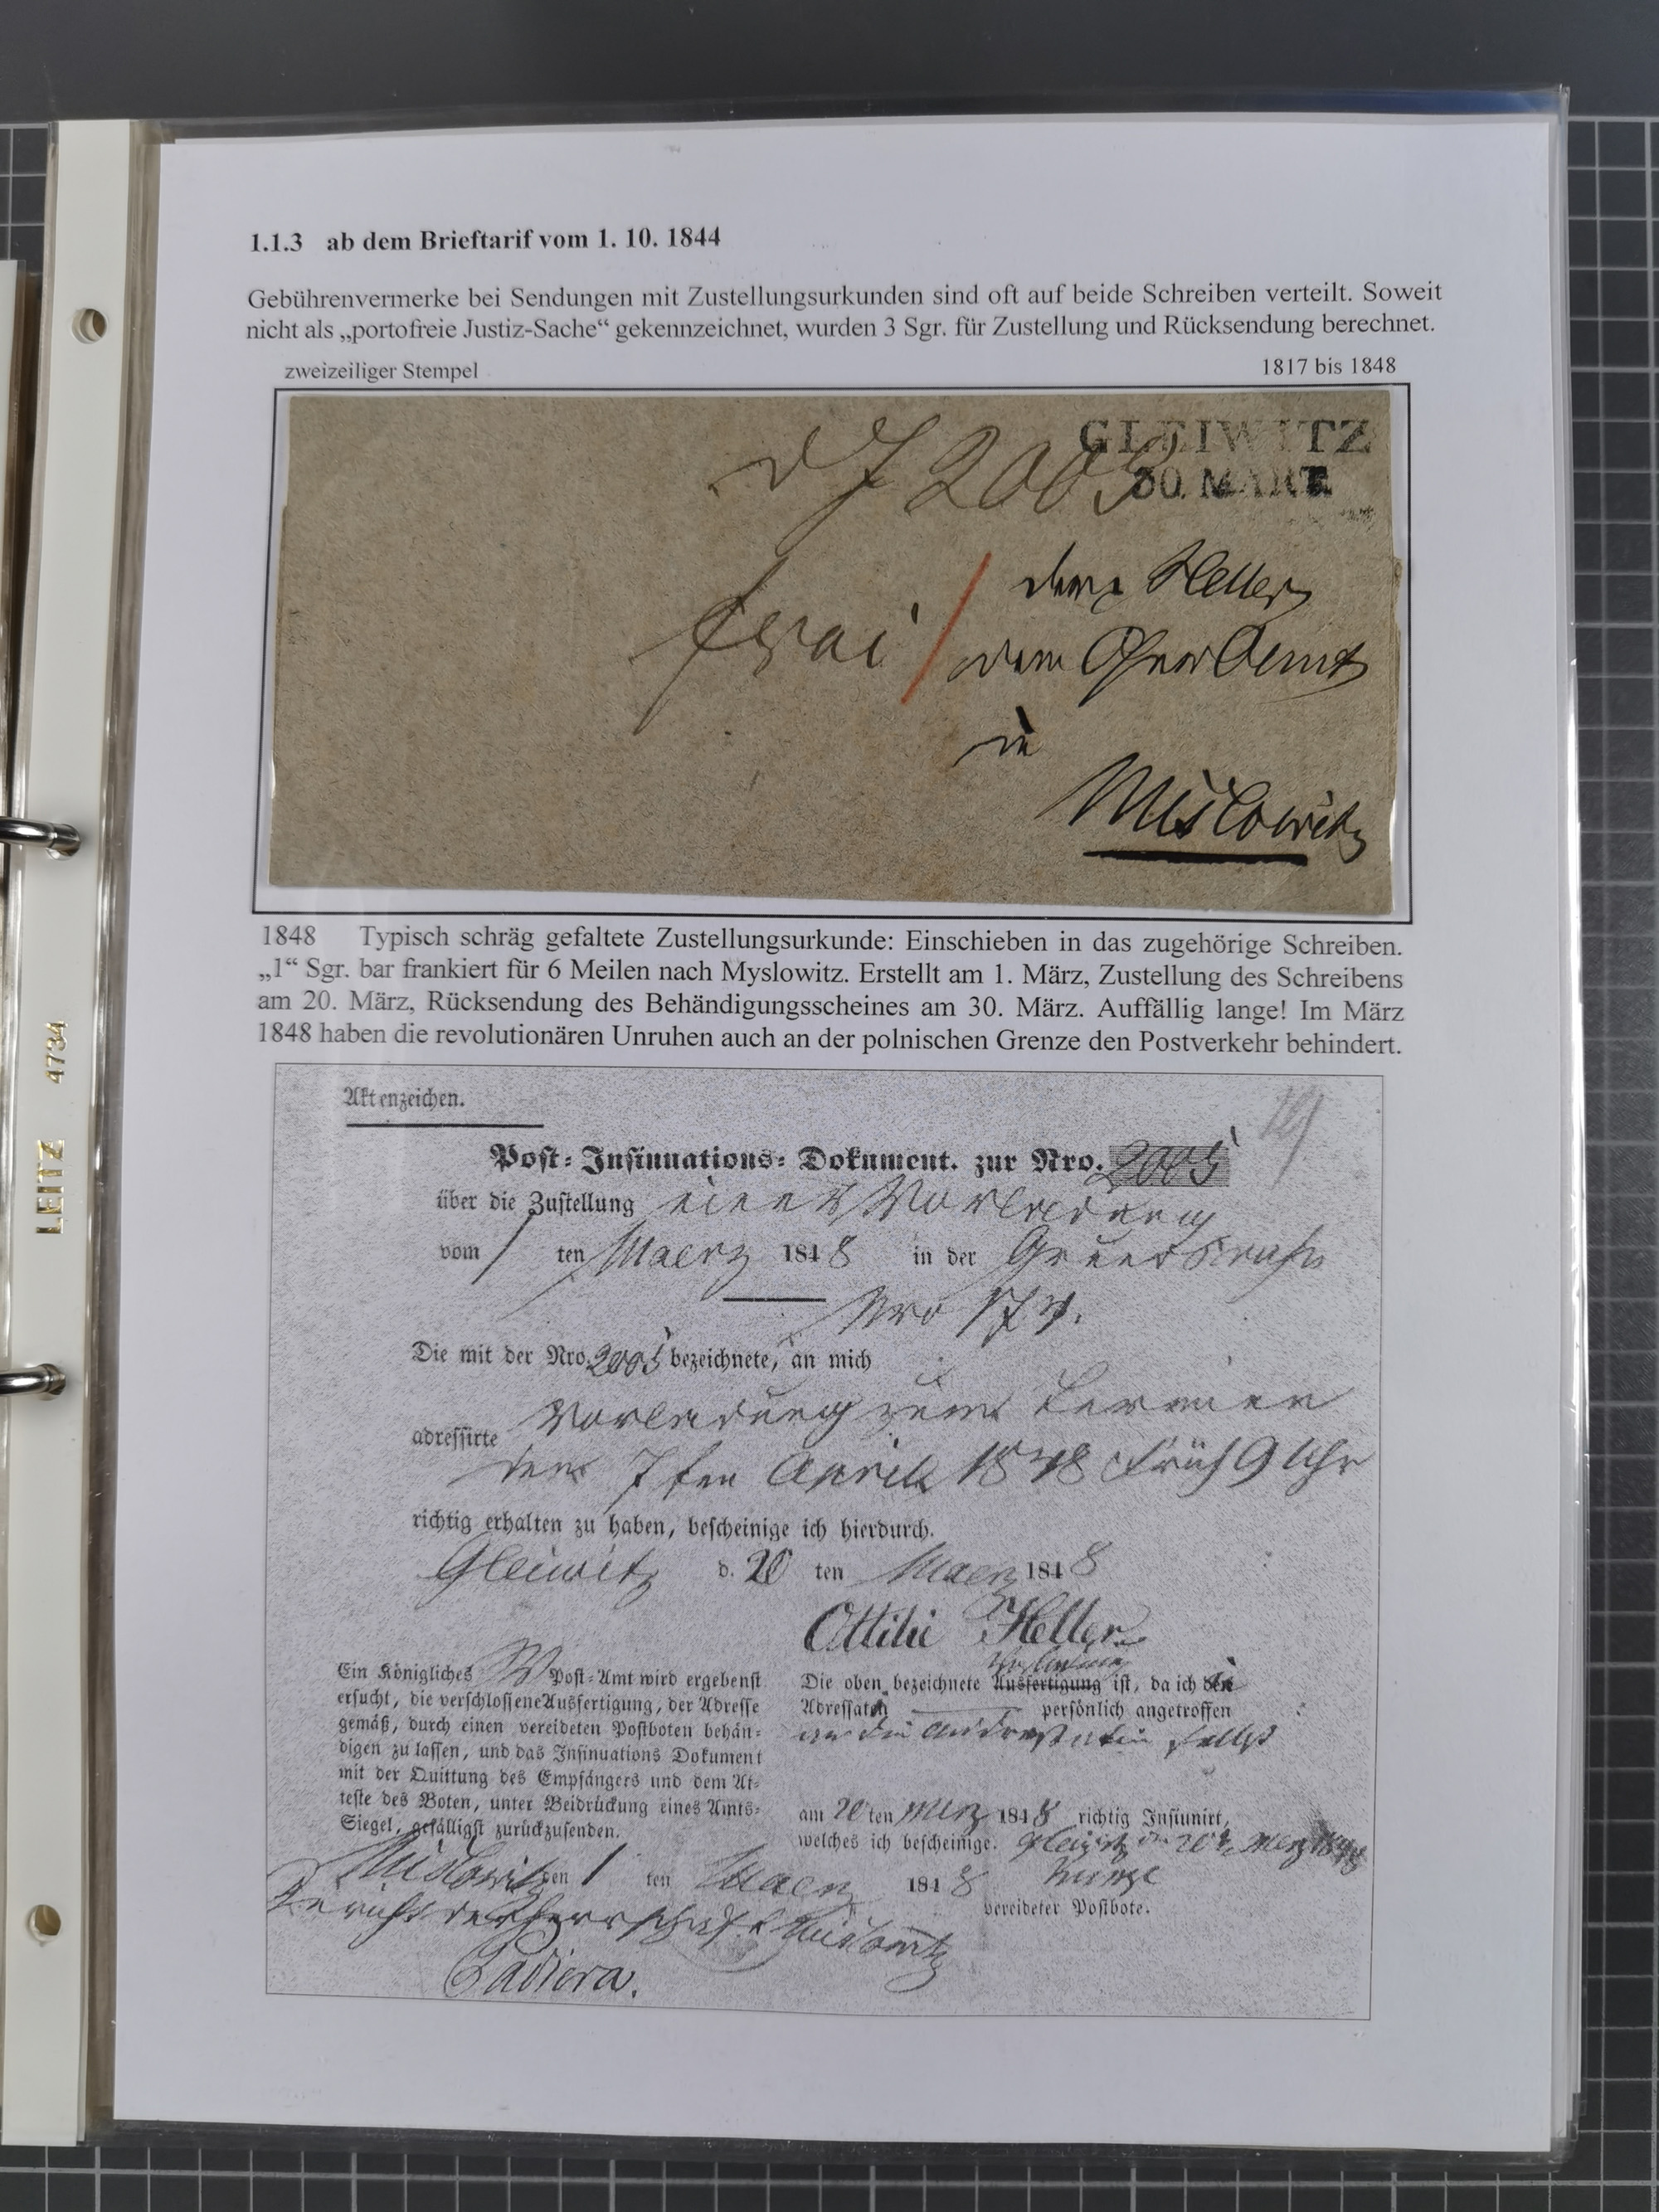 1.1.3 ab dem Brieftarif vom 1. 10. 1844
Gebührenvermerke bei Sendungen mit Zustellungsurkunden sind oft auf beide Schreiben verteilt. Soweit
nicht als „portofreie Justiz-Sache“ gekennzeichnet, wurden 3 Sgr. für Zustellung und Rücksendung berechnet.
zweizeiliger Stempel 1817 bis 1848
GLEIWITZ
30. MÄRZ
2005
frai
Heller
in
Mislowitz
1848 Typisch schräg gefaltete Zustellungsurkunde: Einschieben in das zugehörige Schreiben.
„1“ Sgr. bar frankiert für 6 Meilen nach Myslowitz. Erstellt am 1. März, Zustellung des Schreibens
am 20. März, Rücksendung des Behändigungsscheines am 30. März. Auffällig lange! Im März
1848 haben die revolutionären Unruhen auch an der polnischen Grenze den Postverkehr behindert.
Aktenzeichen.
Post-Insinuations-Dokument. zur Nro. 2005
über die Zustellung einer Vorladung
vom 1 ten Maerz 1848 in der
Nro
Die mit der Nro. 2005 bezeichnete, an mich
adressirte Vorladung zum Termin
den 7ten April 1848 Früh 9 Uhr
richtig erhalten zu haben, bescheinige ich hierdurch.
Gleiwitz d. 20 ten Maerz 1848
Ottilie Heller
Ein Königliches Post-Amt wird ergebenst
ersucht, die verschlossene Ausfertigung, der Adresse
gemäß, durch einen vereideten Postboten behän-
digen zu lassen, und das Insinuations Dokument
mit der Quittung des Empfängers und dem At-
teste des Boten, unter Beidrückung eines Amts-
Siegel, gefälligst zurückzusenden.
Mislowitz den 1 ten Maerz 1848
Gericht der Herrschaft Mislowitz
Vorladung
Die oben bezeichnete Ausfertigung ist, da ich die
Adressatin persönlich angetroffen
an die Adressatin selbst
am 20 ten Merz 1848 richtig Insinuirt,
welches ich bescheinige. Gleiwitz den 20t Merz 1848
vereideter Postbote.
LEITZ 4734